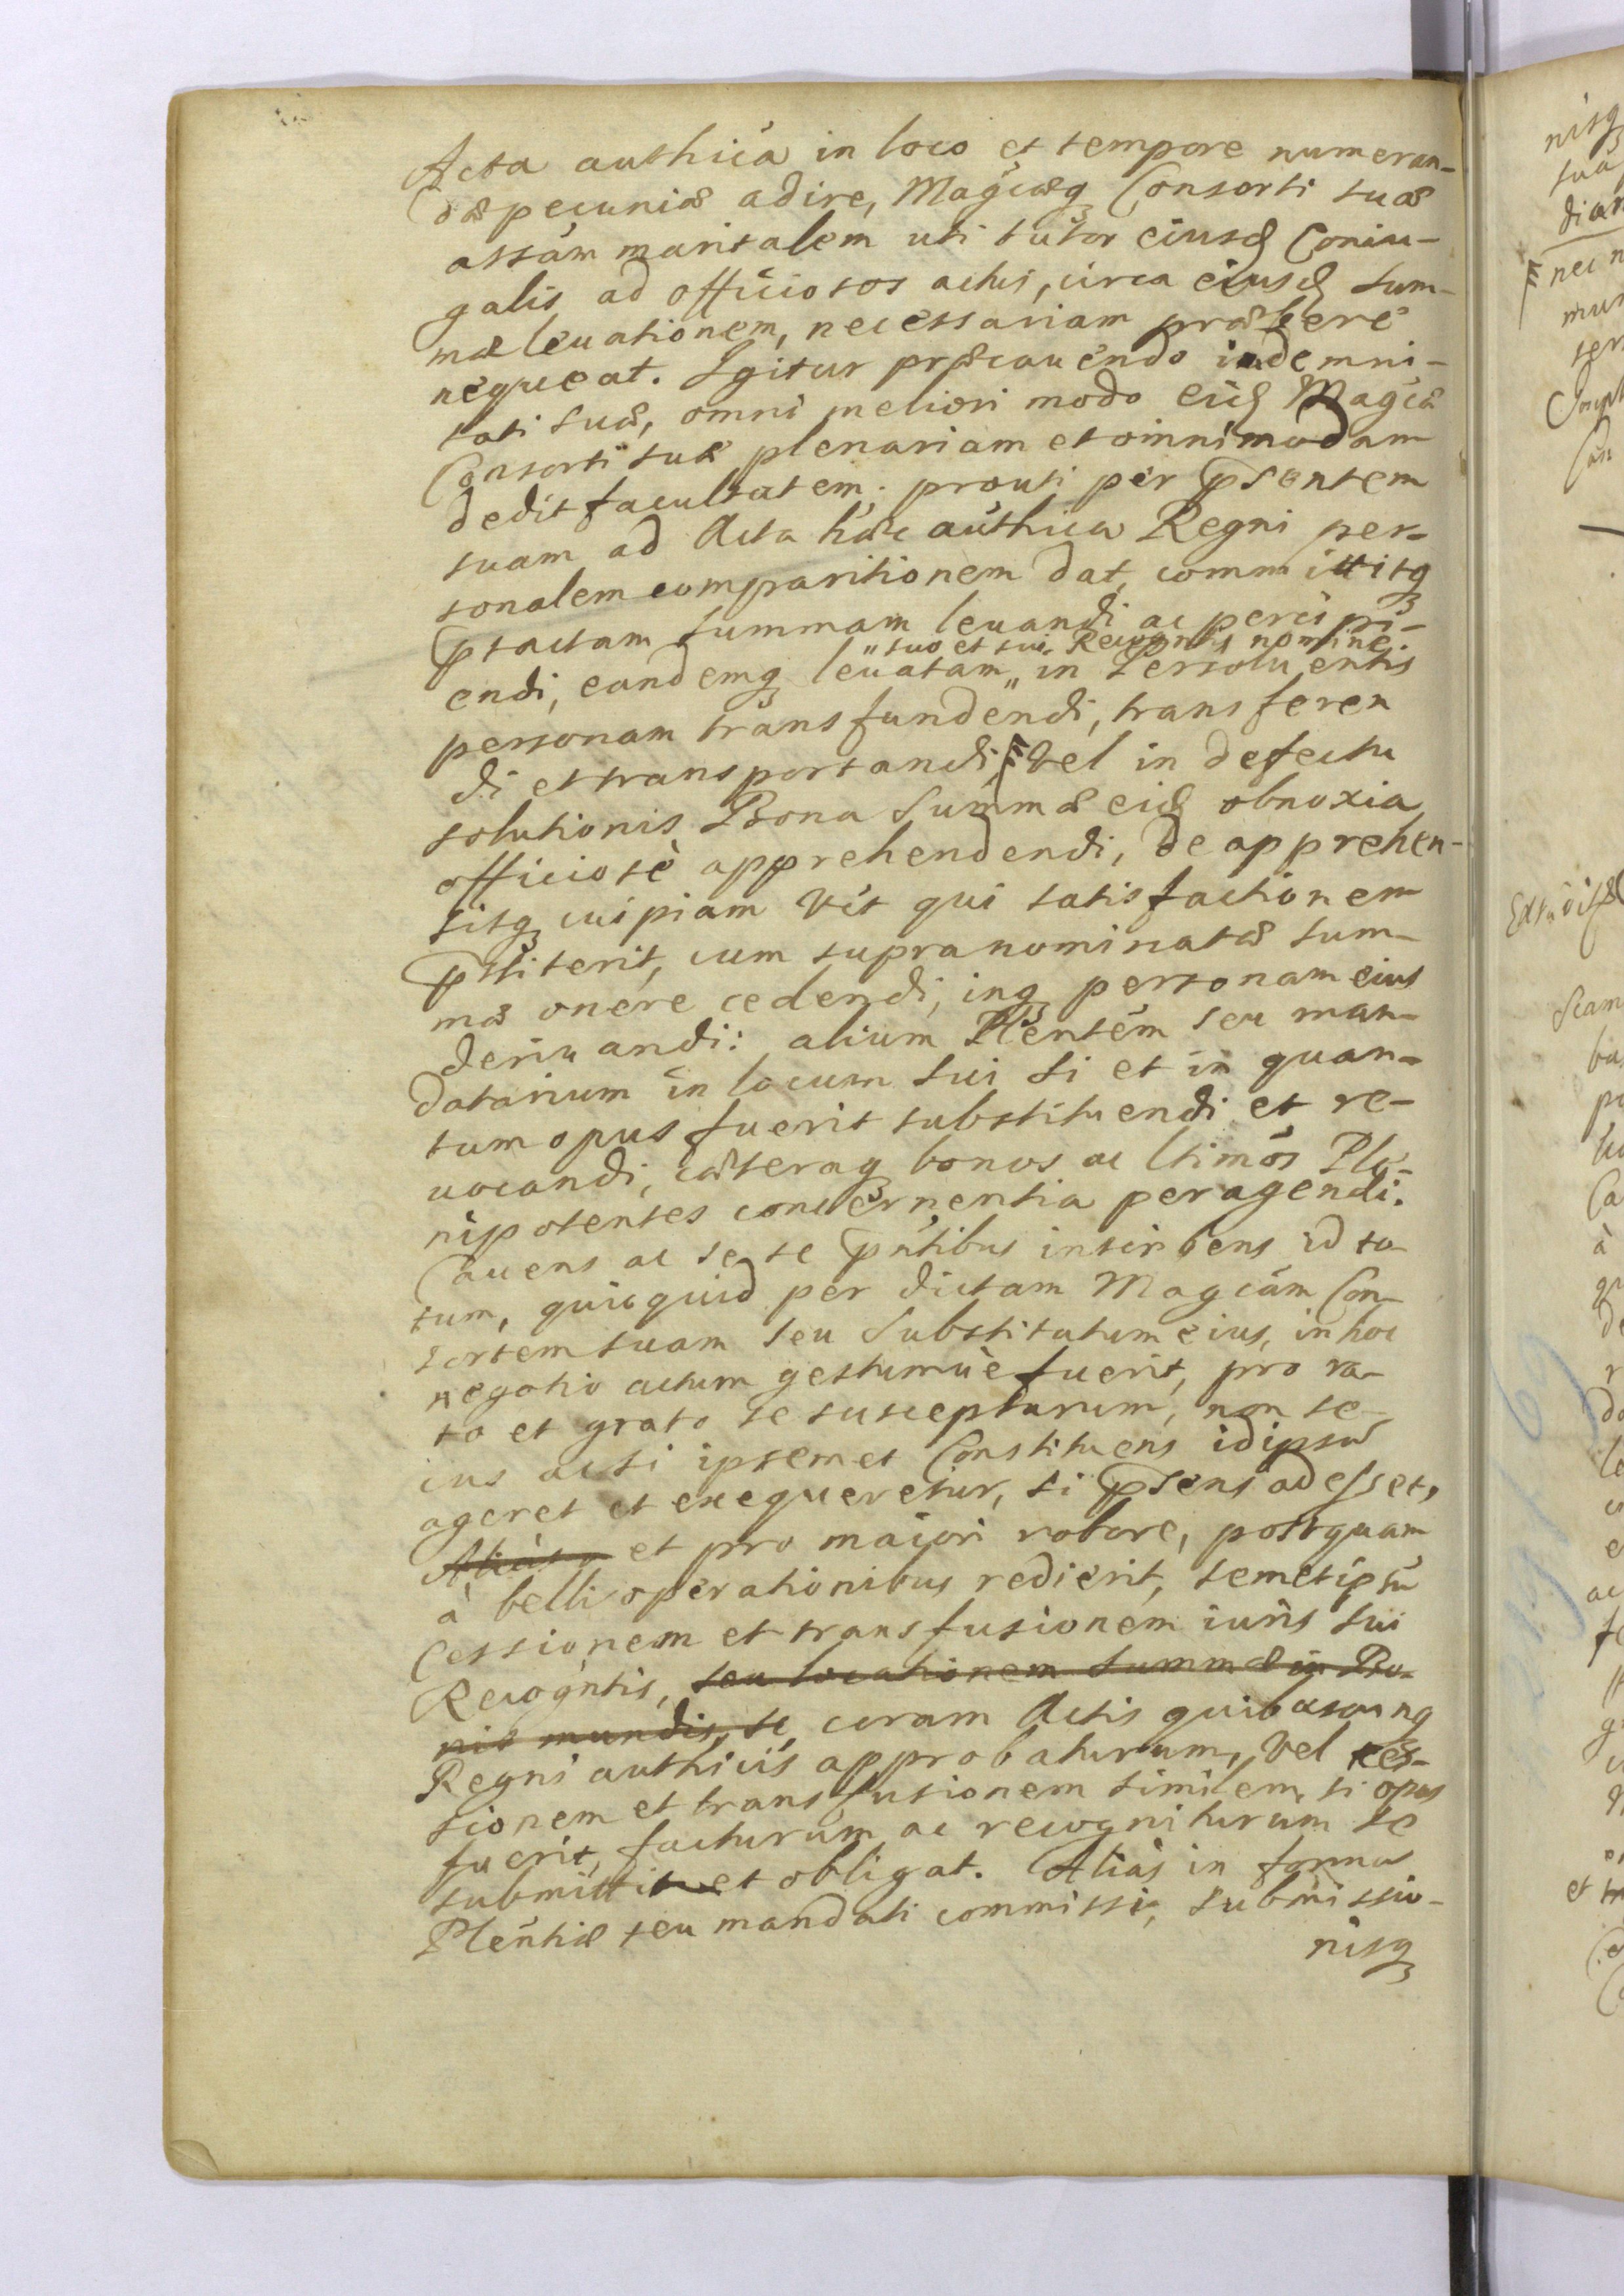 Acta authica in loco et tempore numeran-
dæ pecuniæ adire, Mag̃cæq̃ Consorti suæ
assãm maritalem uti tutor eiusd̃ Coniu-
galis ad officiosos actus, circa eiusd̃ sum-
mæ leuationem, necessariam præbere
nequeat. Igitur præcauendo indemni-
tati suæ, omni meliori modo eid̃ Mag̃cæ
Consorti suæ plenariam et omnimodam
dedit facultatem. prouti per p̃sentem
suam ad Acta hæc authica Regni per-
sonalem comparitionem dat, committitq̃
p̃tactam summam leuandi ac percipi-
" suo et sui Recogñtis nomine
endi, eandemq̃ leuatam " in Persoluentis
personam transfundendi, transferen
di et transportandi, vel in defectu
solutionis Bona Summæ eid̃ obnoxia
officiosè apprehendendi, de apprehen-
sisq̃ cuipiam vt̃ qui satisfactionem
p̃stiterit, cum supranominatæ sum-
mæ onere cedendi, inq̃ personam eius
deriuandi: alium Pleñtem seu man-
datarium in locum sui si et in quan-
tum opus fuerit substituendi et re-
uocandi, cæteraq̃ bonos ac ltimos Ple-
nipotentes concernentia peragendi.
Cauens ac sese p̃ntibus inscribens id to-
tum, quicquid per dictam Magcam Con-
sortem suam seu Substitutum eius, in hoc
negotio actum gestumuè fuerit, pro ra-
to et grato se suscepturum, non se-
cus acsi ipsemet Constituens idipsũ
ageret et exequeretur, si p̃sens adesset,
et pro maiori robore, postquam
à belli operationibus redierit, semetipsũ
Cessionem et transfusionem iuris sui
Recogñtis, seu locationem summæ in Bo-
nis mundis, se, coram Actis quibuscunq̃
Regni authicis approbaturum, vel ces-
sionem et transfusionem similem, si opus
fuerit, facturum ac recogniturum se
submittit et obligat. Alias in forma
Pleñtiæ seu mandati commissi, submissio-
nisq̃